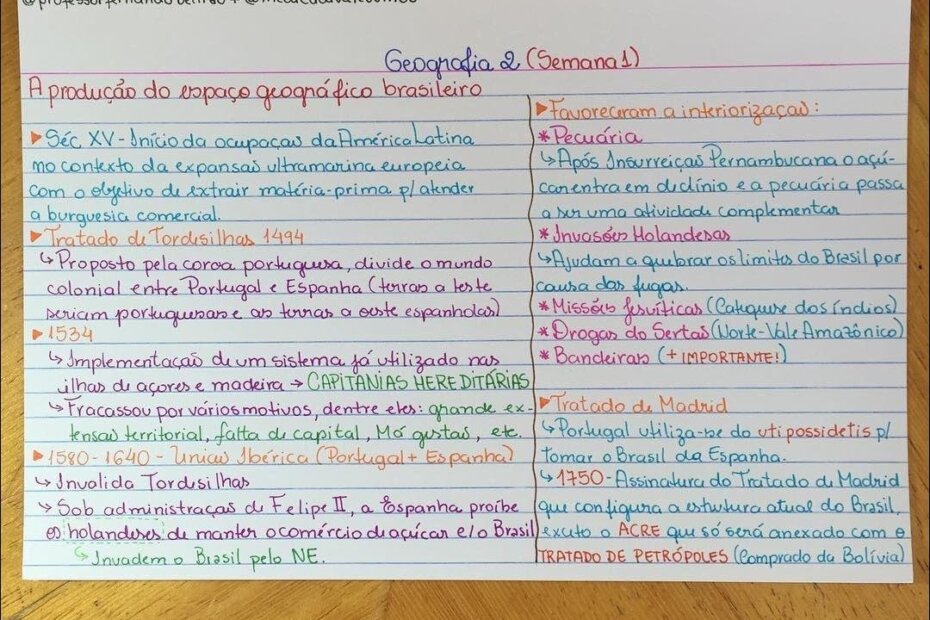 Geografia 2 (Semana 1)
A produção do espaço geográfico brasileiro
▶Séc XV - Início da ocupação da América Latina
no contexto da expansão ultramarina europeia
com o objetivo de extrair matéria-prima p/ atender
a burguesia comercial.
▶Tratado de Tordesilhas 1494
↳Proposto pela coroa portuguesa, divide o mundo
colonial entre Portugal e Espanha (terras a leste
seriam portuguesas e as terras a oeste espanholas)
▶1534
↳Implementação de um sistema já utilizado nas
ilhas de açores e madeira → CAPITANIAS HEREDITÁRIAS
↳Fracassou por vários motivos, dentre eles: grande ex-
tensão territorial, falta de capital, Má gestão, etc.
▶1580-1640 - União Ibérica (Portugal + Espanha)
↳Invalida Tordesilhas
↳Sob administração de Felipe II, a Espanha proíbe
os holandeses de manter o comércio do açúcar c/ o Brasil
↳Invadem o Brasil pelo NE.
▶Favoreceram a interiorização:
*Pecuária
↳Após Insurreição Pernambucana o açú-
car entra em declínio e a pecuária passa
a ser uma atividade complementar
*Invasões Holandesas
↳Ajudam a quebrar os limites do Brasil por
causa das fugas.
*Missões Jesuíticas (Catequese dos índios)
*Drogas do Sertão (Norte-Vale Amazônico)
*Bandeiras (+ IMPORTANTE!)
▶Tratado de Madrid
↳Portugal utiliza-se do uti possidetis p/
tomar o Brasil da Espanha.
↳1750-Assinatura do Tratado de Madrid
que configura a estrutura atual do Brasil,
exceto o ACRE que só será anexado com o
TRATADO DE PETRÓPOLES (Comprado da Bolívia)